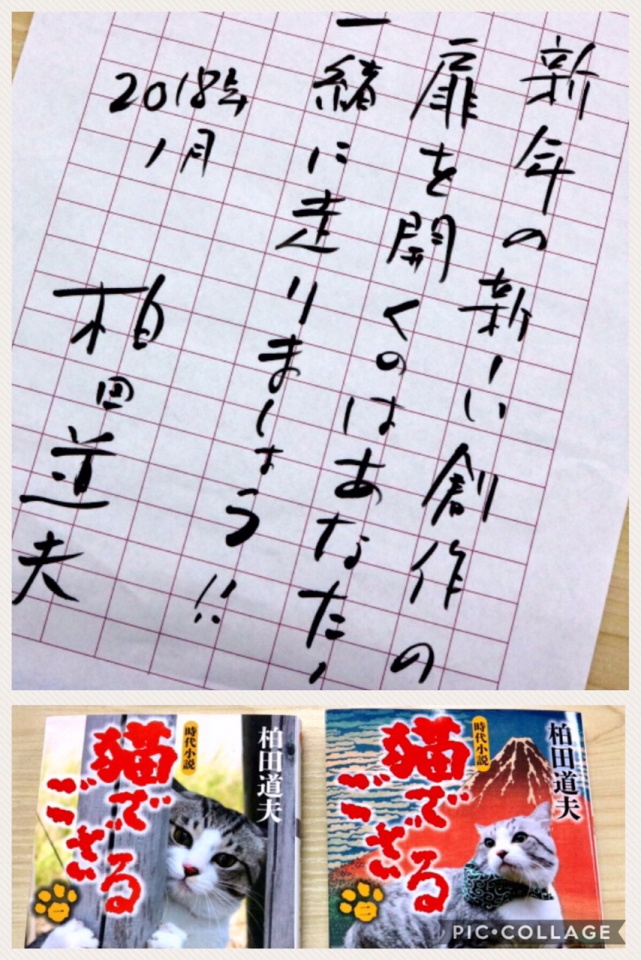 新年の新しい創作の
扉を開くのはあなた！
一緒に走りましょう!!
2018年
1月
柏田道夫
柏田道夫
時代小説
猫で
ござる
一
柏田道夫
時代小説
猫で
ござる
二
PIC•COLLAGE